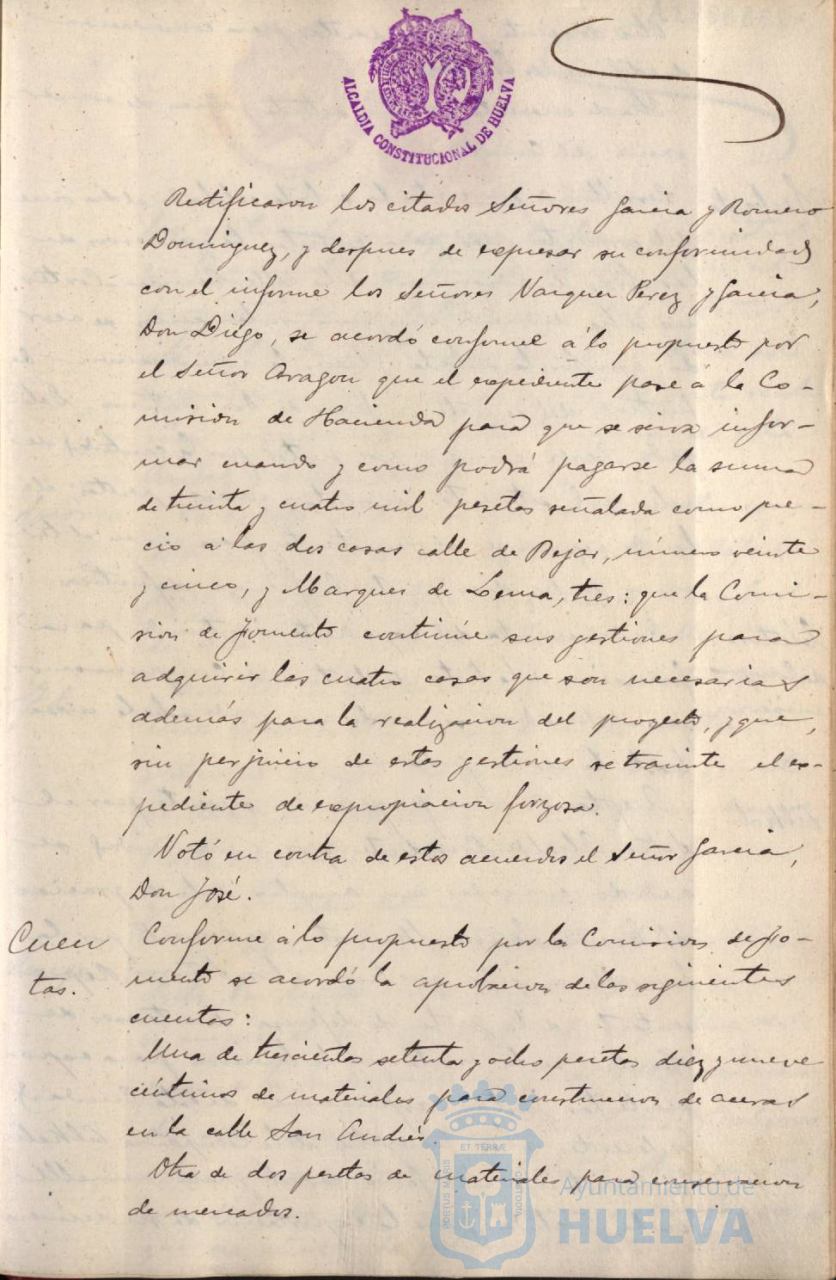 ALCALDIA CONSTITUCIONAL DE HUELVA
Rectificaron los citados Señores Garcia y Romero
Dominguez, y despues de expresar su conformidad
con el informe los Señores Vazquez Perez y Garcia,
Don Diego, se acordó conforme á lo propuesto por
el Señor Aragon que el expediente pase á la Co-
mision de Hacienda para que se sirva infor-
mar cuando y como podrá pagarse la suma
de treinta y cuatro mil pesetas señalada como pre-
cio á las dos casas calle de Bejar, número veinte
y cinco, y Marques de Lema, tres: que la Comi-
sion de Fomento continúe sus gestiones para
adquirir las cuatro casas que son necesarias
además para la realizacion del proyecto, y que,
sin perjuicio de estas gestiones se tramite el ex-
pediente de expropiacion forzosa.
Votó en contra de estos acuerdos el Señor Garcia,
Don José.
Cuen
tas.
Conforme á lo propuesto por la Comision de Fo-
mento se acordó la aprobacion de las siguientes
cuentas:
Una de trescientas setenta y ocho pesetas diez y nueve
céntimos de materiales para construccion de aceras
en la calle San Andrés.
Otra de dos pesetas de materiales para conservacion
de mercados.
ET TERRÆ
Ayuntamiento de
HUELVA